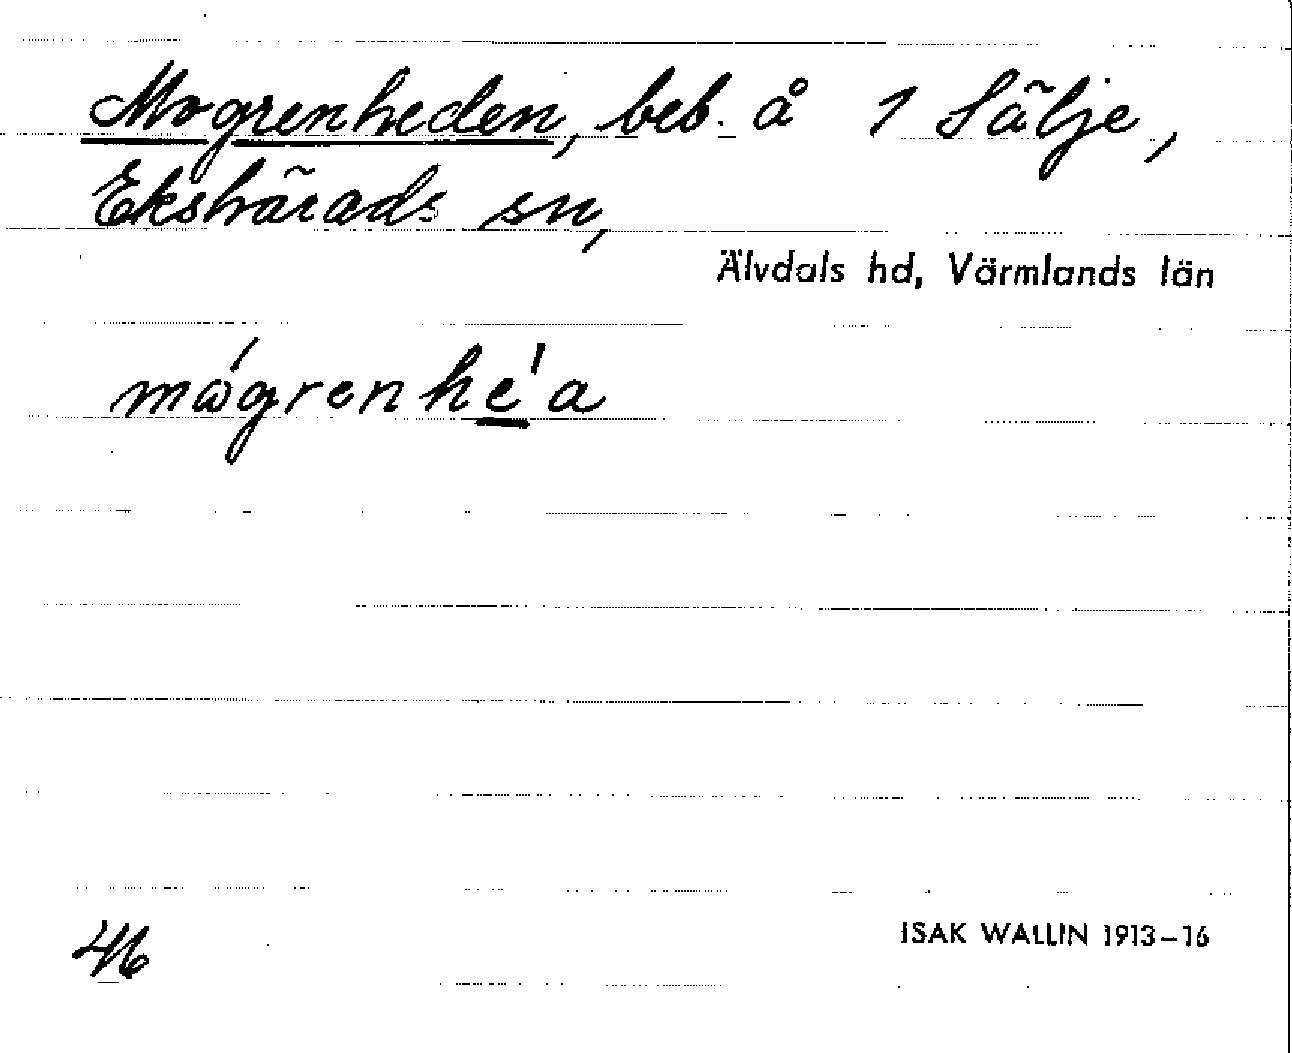 Mogrenheden, beb. å 1 Sälje,
Ekshärads sn,
Älvdals hd, Värmlands län
mógrenhe̲'a
46
ISAK WALLIN 1913–16